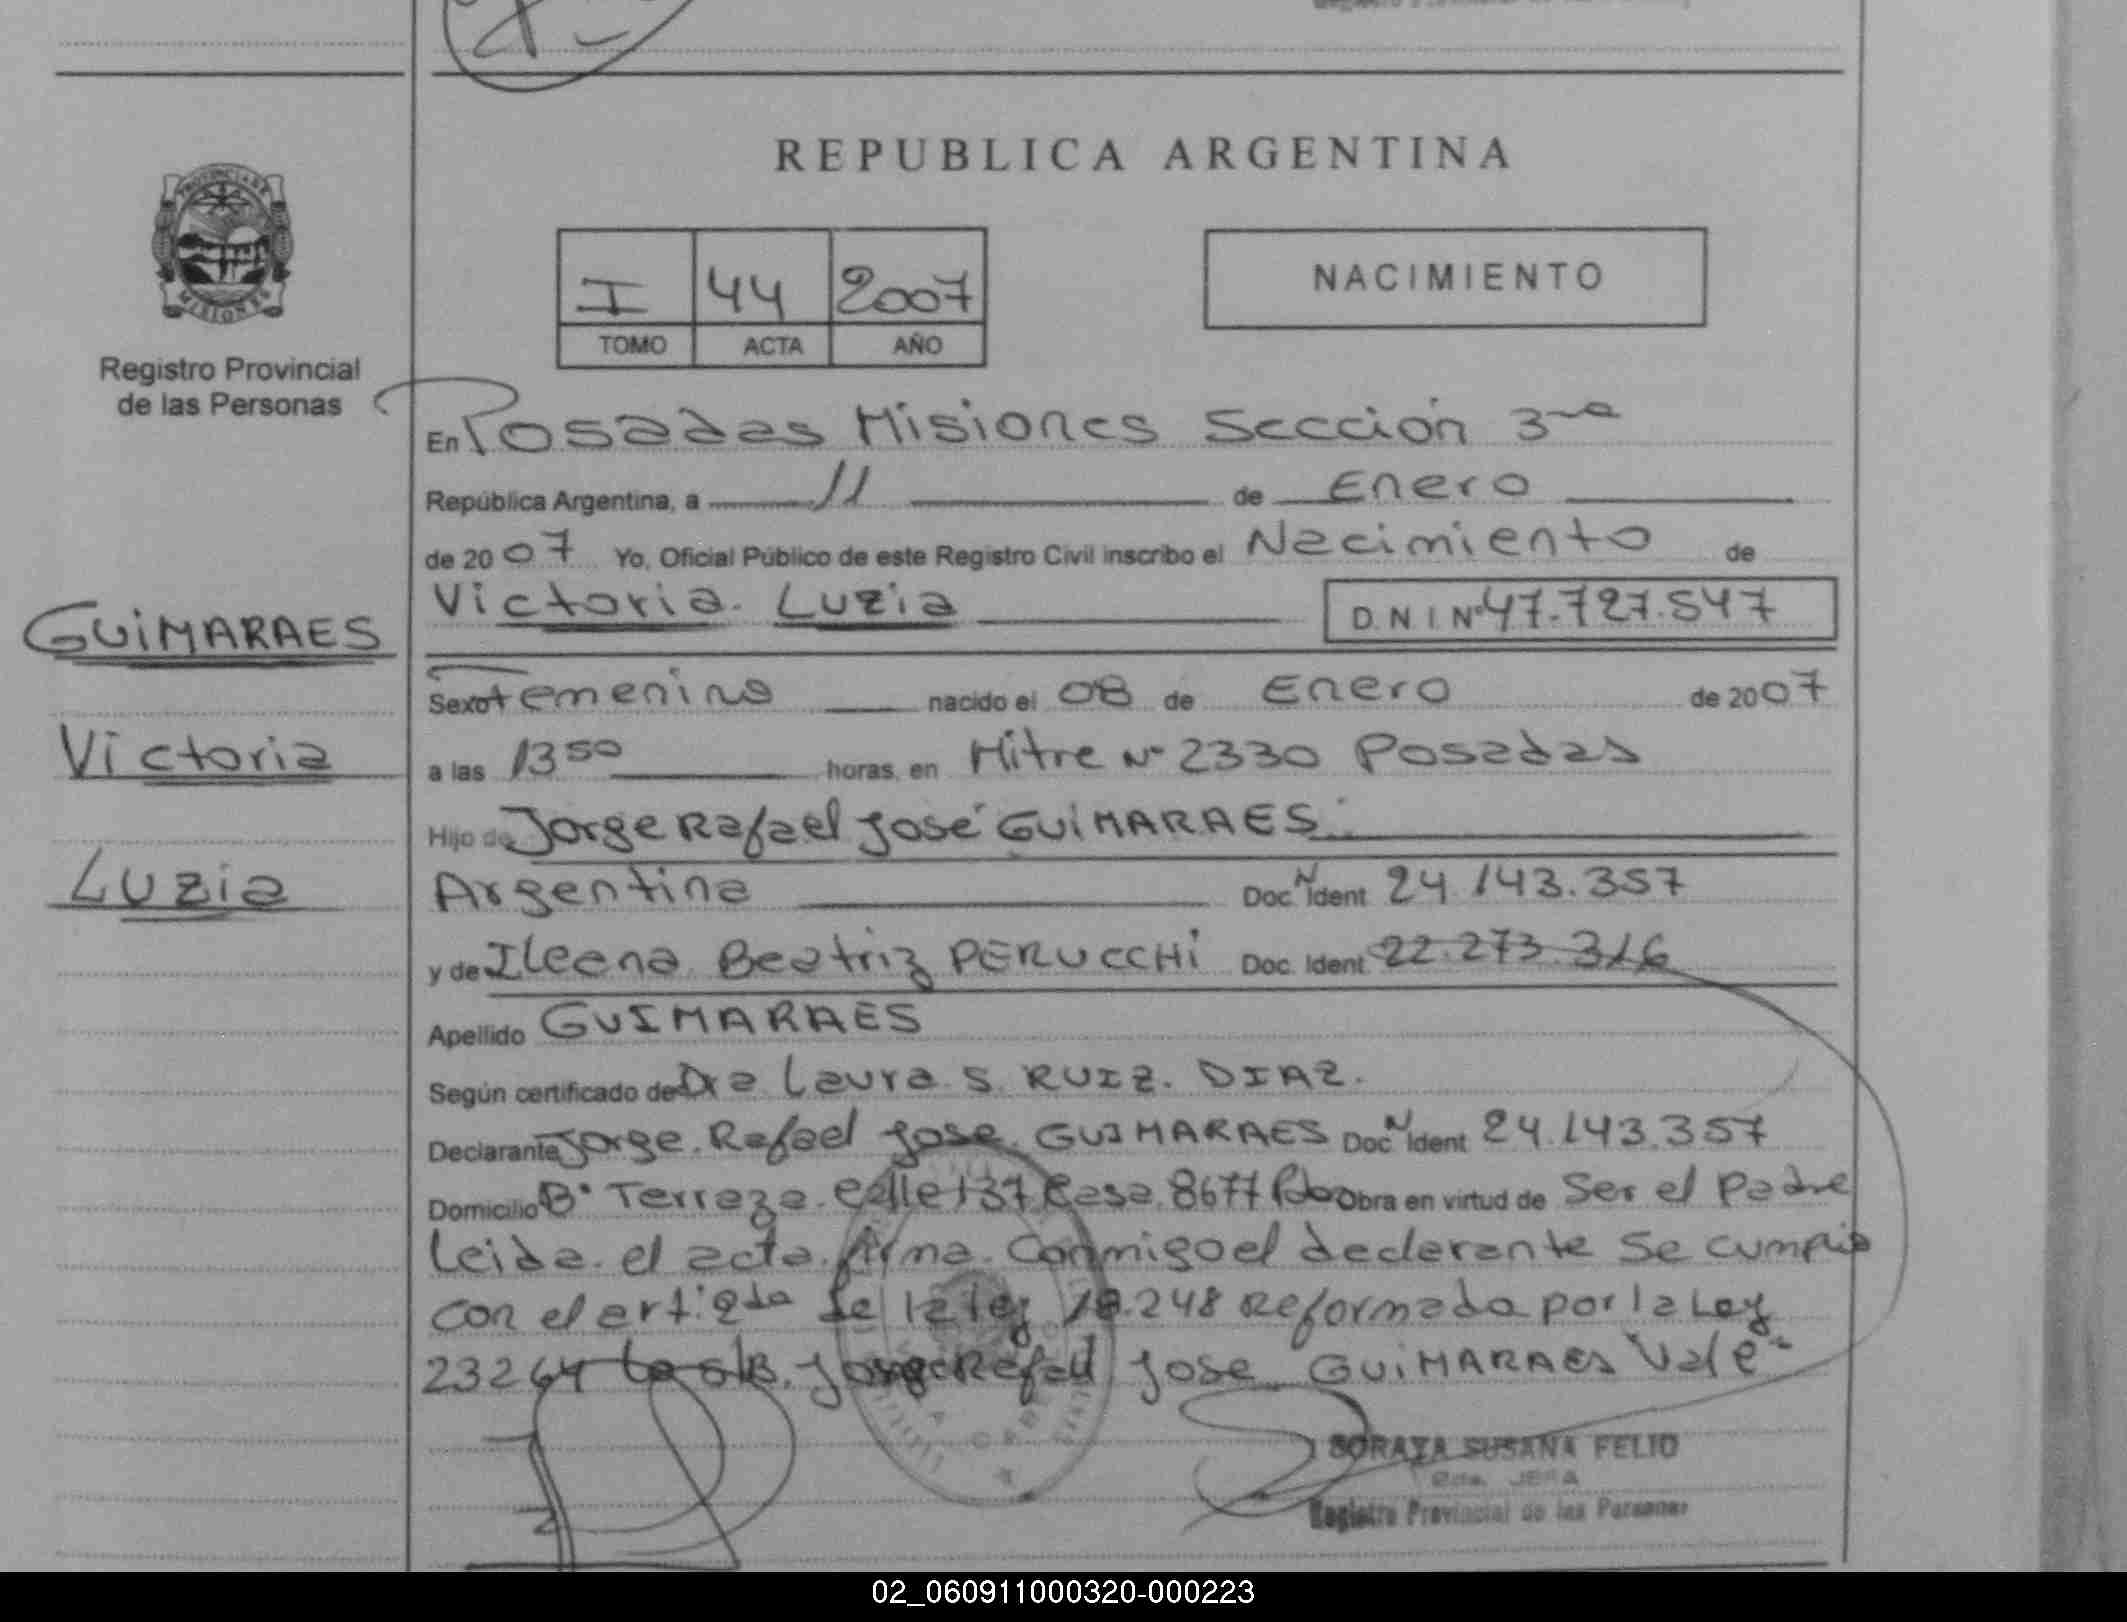 REPUBLICA ARGENTINA
PROVINCIA DE
MISIONES
Registro Provincial
de las Personas
I 44 2007
TOMO ACTA AÑO
NACIMIENTO
En Posadas Misiones Sección 3ra
República Argentina, a 11 de Enero
de 2007 Yo, Oficial Público de este Registro Civil inscribo el Nacimiento de
Victoria Luzia D.N.I. Nº 47.727.547
GUiMARAES
Victoria
Luzia
Sexo Femenino nacido el 08 de Enero de 2007
a las 13 50 horas, en Mitre Nº 2330 Posadas
Hijo de Jorge Rafael José GUiMARAES
Argentina Doc. N Ident 24.143.357
y de Ileana Beatriz PERUCCHi Doc. Ident 22.273.316
Apellido GUIMARAES
Según certificado de Dra Laura S. RUIZ. DIAZ.
Declarante Jorge Rafael Jose GUIMARAES Doc. N Ident 24.143.357
Domicilio Bº Terraza Calle 137 Casa 8677 Pdas Obra en virtud de Ser el Padre
Leida el acta firma Conmigo el declarante Se cumplio
con el art. 2do de la ley 18.248 Reformada por la Ley
23264 Jorge Rafael Jose GUiMARAES Vale
SORAYA SUSANA FELIO
2da. JEFA
Registro Provincial de las Personas
02_060911000320-000223